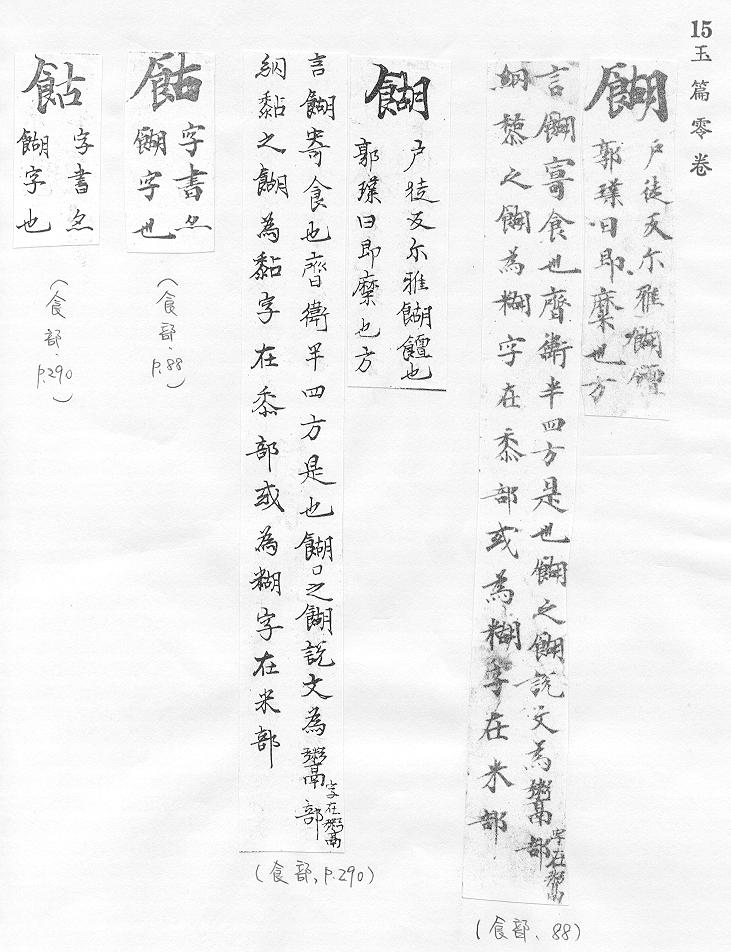 15玉篇零卷
餬
户徒反尔雅餬饘
郭璞曰即糜也方
言餬寄食也齊衛半四方是也餬之餬說文為鬻字在䰜部
細䵒之餬為糊字在黍部或為糊字在米部
(食部、88)
餬
户徒反尔雅餬饘也
郭璞曰即糜也方
言餬寄食也齊衛半四方是也餬口之餬說文為鬻字在䰜部
納黏之餬為黏字在黍部或為糊字在米部
(食部,p.290)
𩚩
字書亦
餬字也
(食部.p.88)
字書亦
餬字也
(食部.p.290)